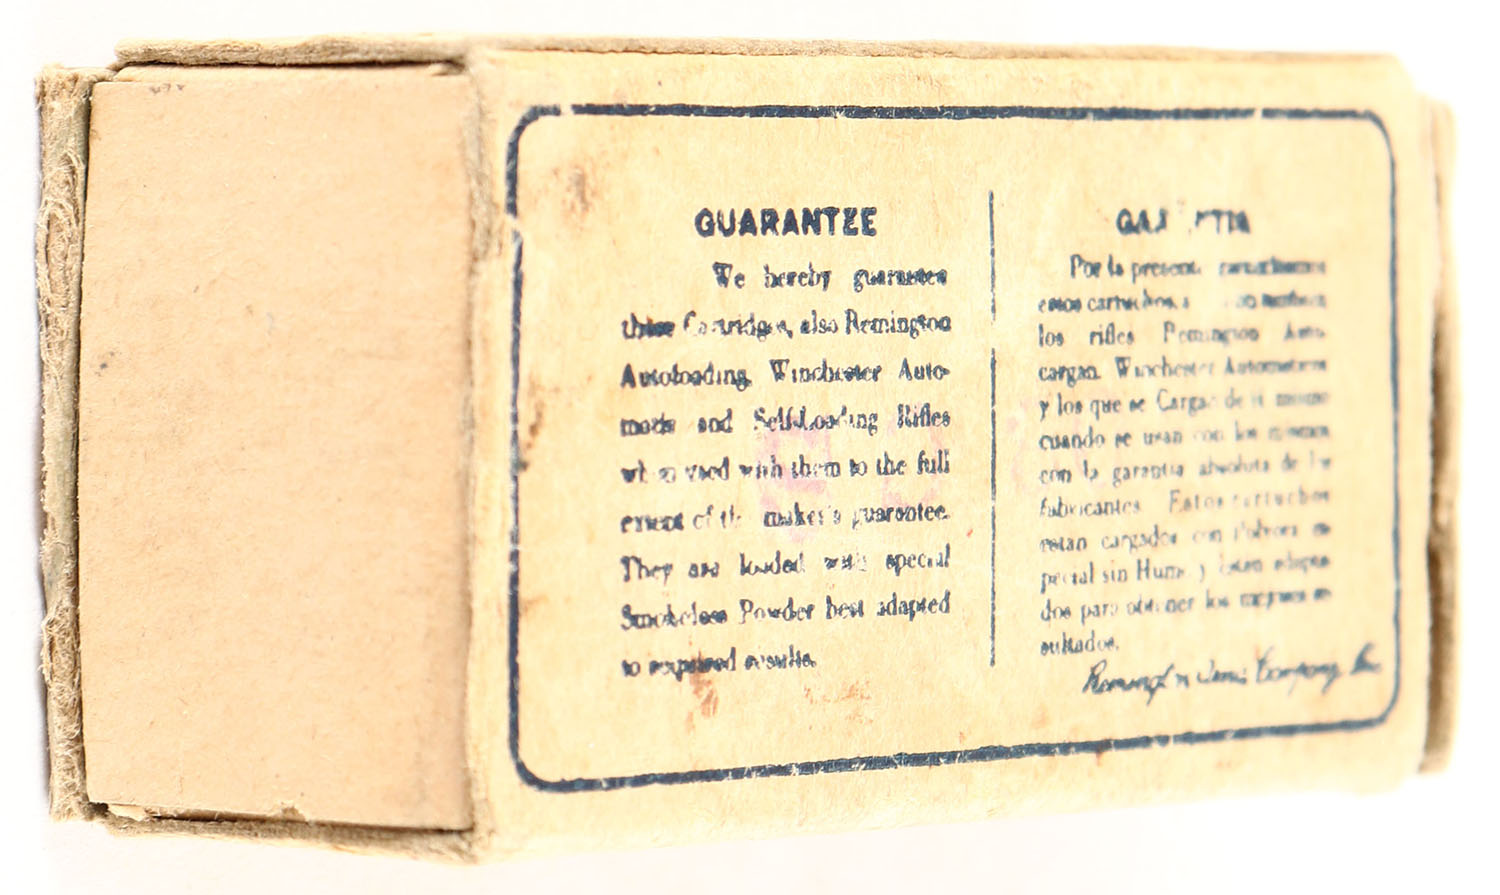 GUARANTEE
We hereby guarantee
these Cartridges, also Remington
Autoloading, Winchester Auto-
matic and Self-Loading Rifles
when used with them to the full
extent of the maker's guarantee.
They are loaded with special
Smokeless Powder best adapted
to required results.
Por la presente garantizamos
estos cartuchos, también
los rifles Remington Auto-
cargan, Winchester Automaticos
y los que se Cargan de si mismo
cuando se usan con los mismos
con la garantia absoluta de los
fabricantes. Estos cartuchos
estan cargados con Polvora es-
pecial sin Humo y estan adapta-
dos para obtener los mejores re-
sultados.
Remington Arms Company Inc